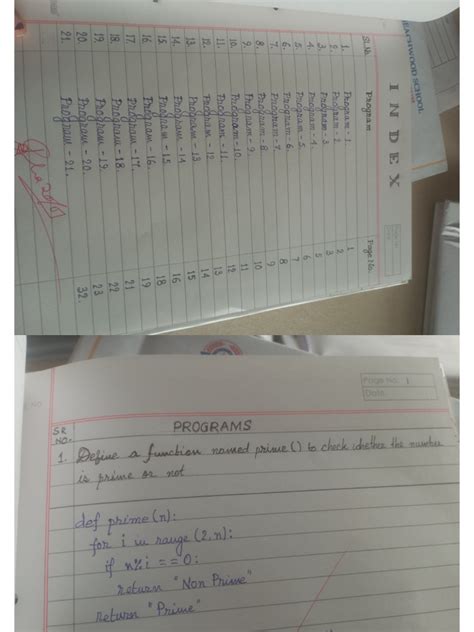 BEACHWOOD SCHOOL
INDEX
Sl.No. Program Page No.
1. Program - 1. 1
2. Program - 2. 2
3. Program - 3. 3
4. Program - 4.
5. Program - 5.
6. Program - 6. 8
7. Program - 7. 9
8. Program - 8. 10
9. Program - 9. 11
10. Program - 10. 12
11. Program - 11. 13
12. Program - 12. 14
13. Program - 13. 15
14. Program - 14 16
15. Program - 15 18
16. Program - 16. 19
17. Program - 17. 21
18. Program - 18. 22
19. Program - 19. 23
20. Program - 20. 32.
21. Program - 21.
Page No: 1
Date:
SR. NO. PROGRAMS
1. Define a function named prime () to check whether the number
is prime or not
def prime (n):
for i in range (2, n):
if n%i == 0:
return "Non Prime"
return "Prime"